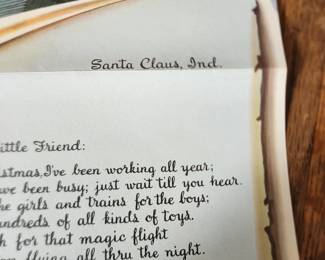 Santa Claus, Ind.
ittle Friend:
istmas, I've been working all year;
ve been busy; just wait till you hear.
he girls and trains for the boys;
undreds of all kinds of toys.
h for that magic flight
flying all thru the night.